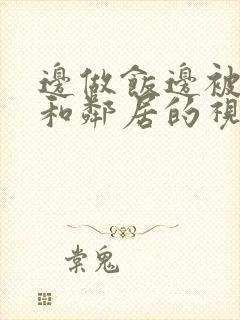 邊做飯邊被
和鄰居的視
棠鬼